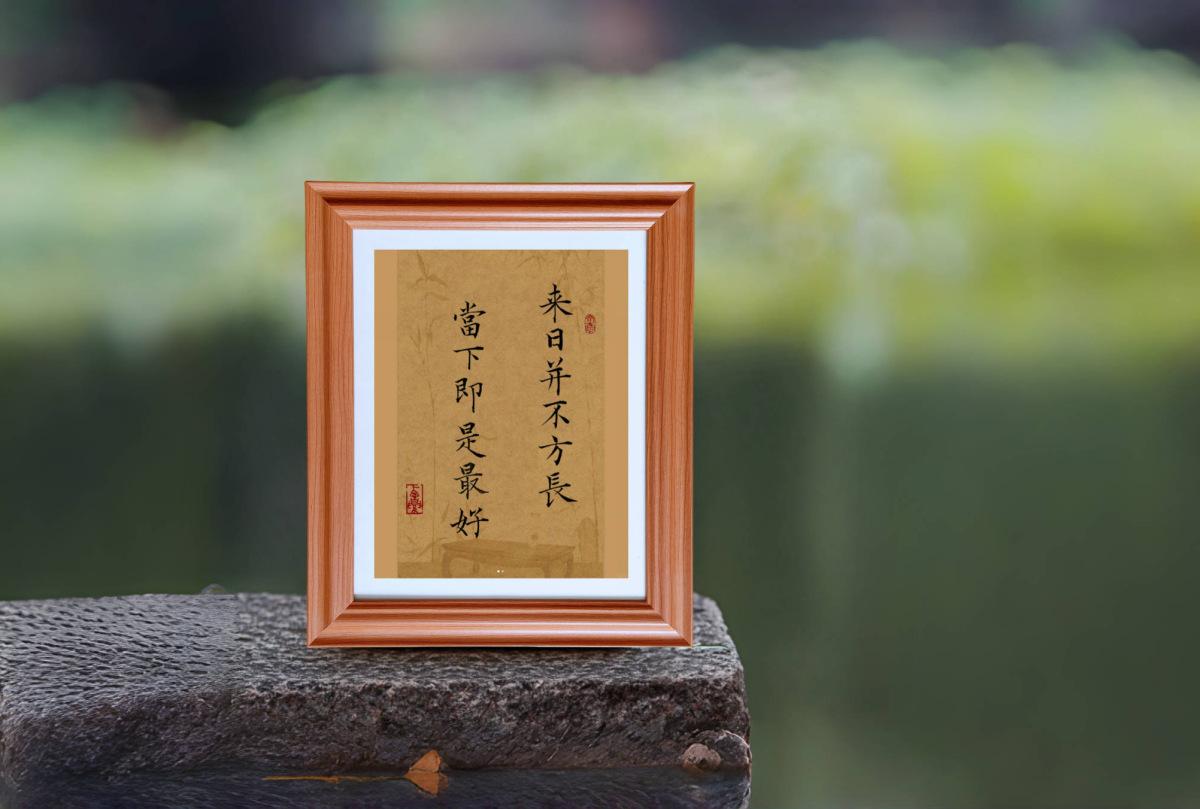 来日并不方長
當下即是最好